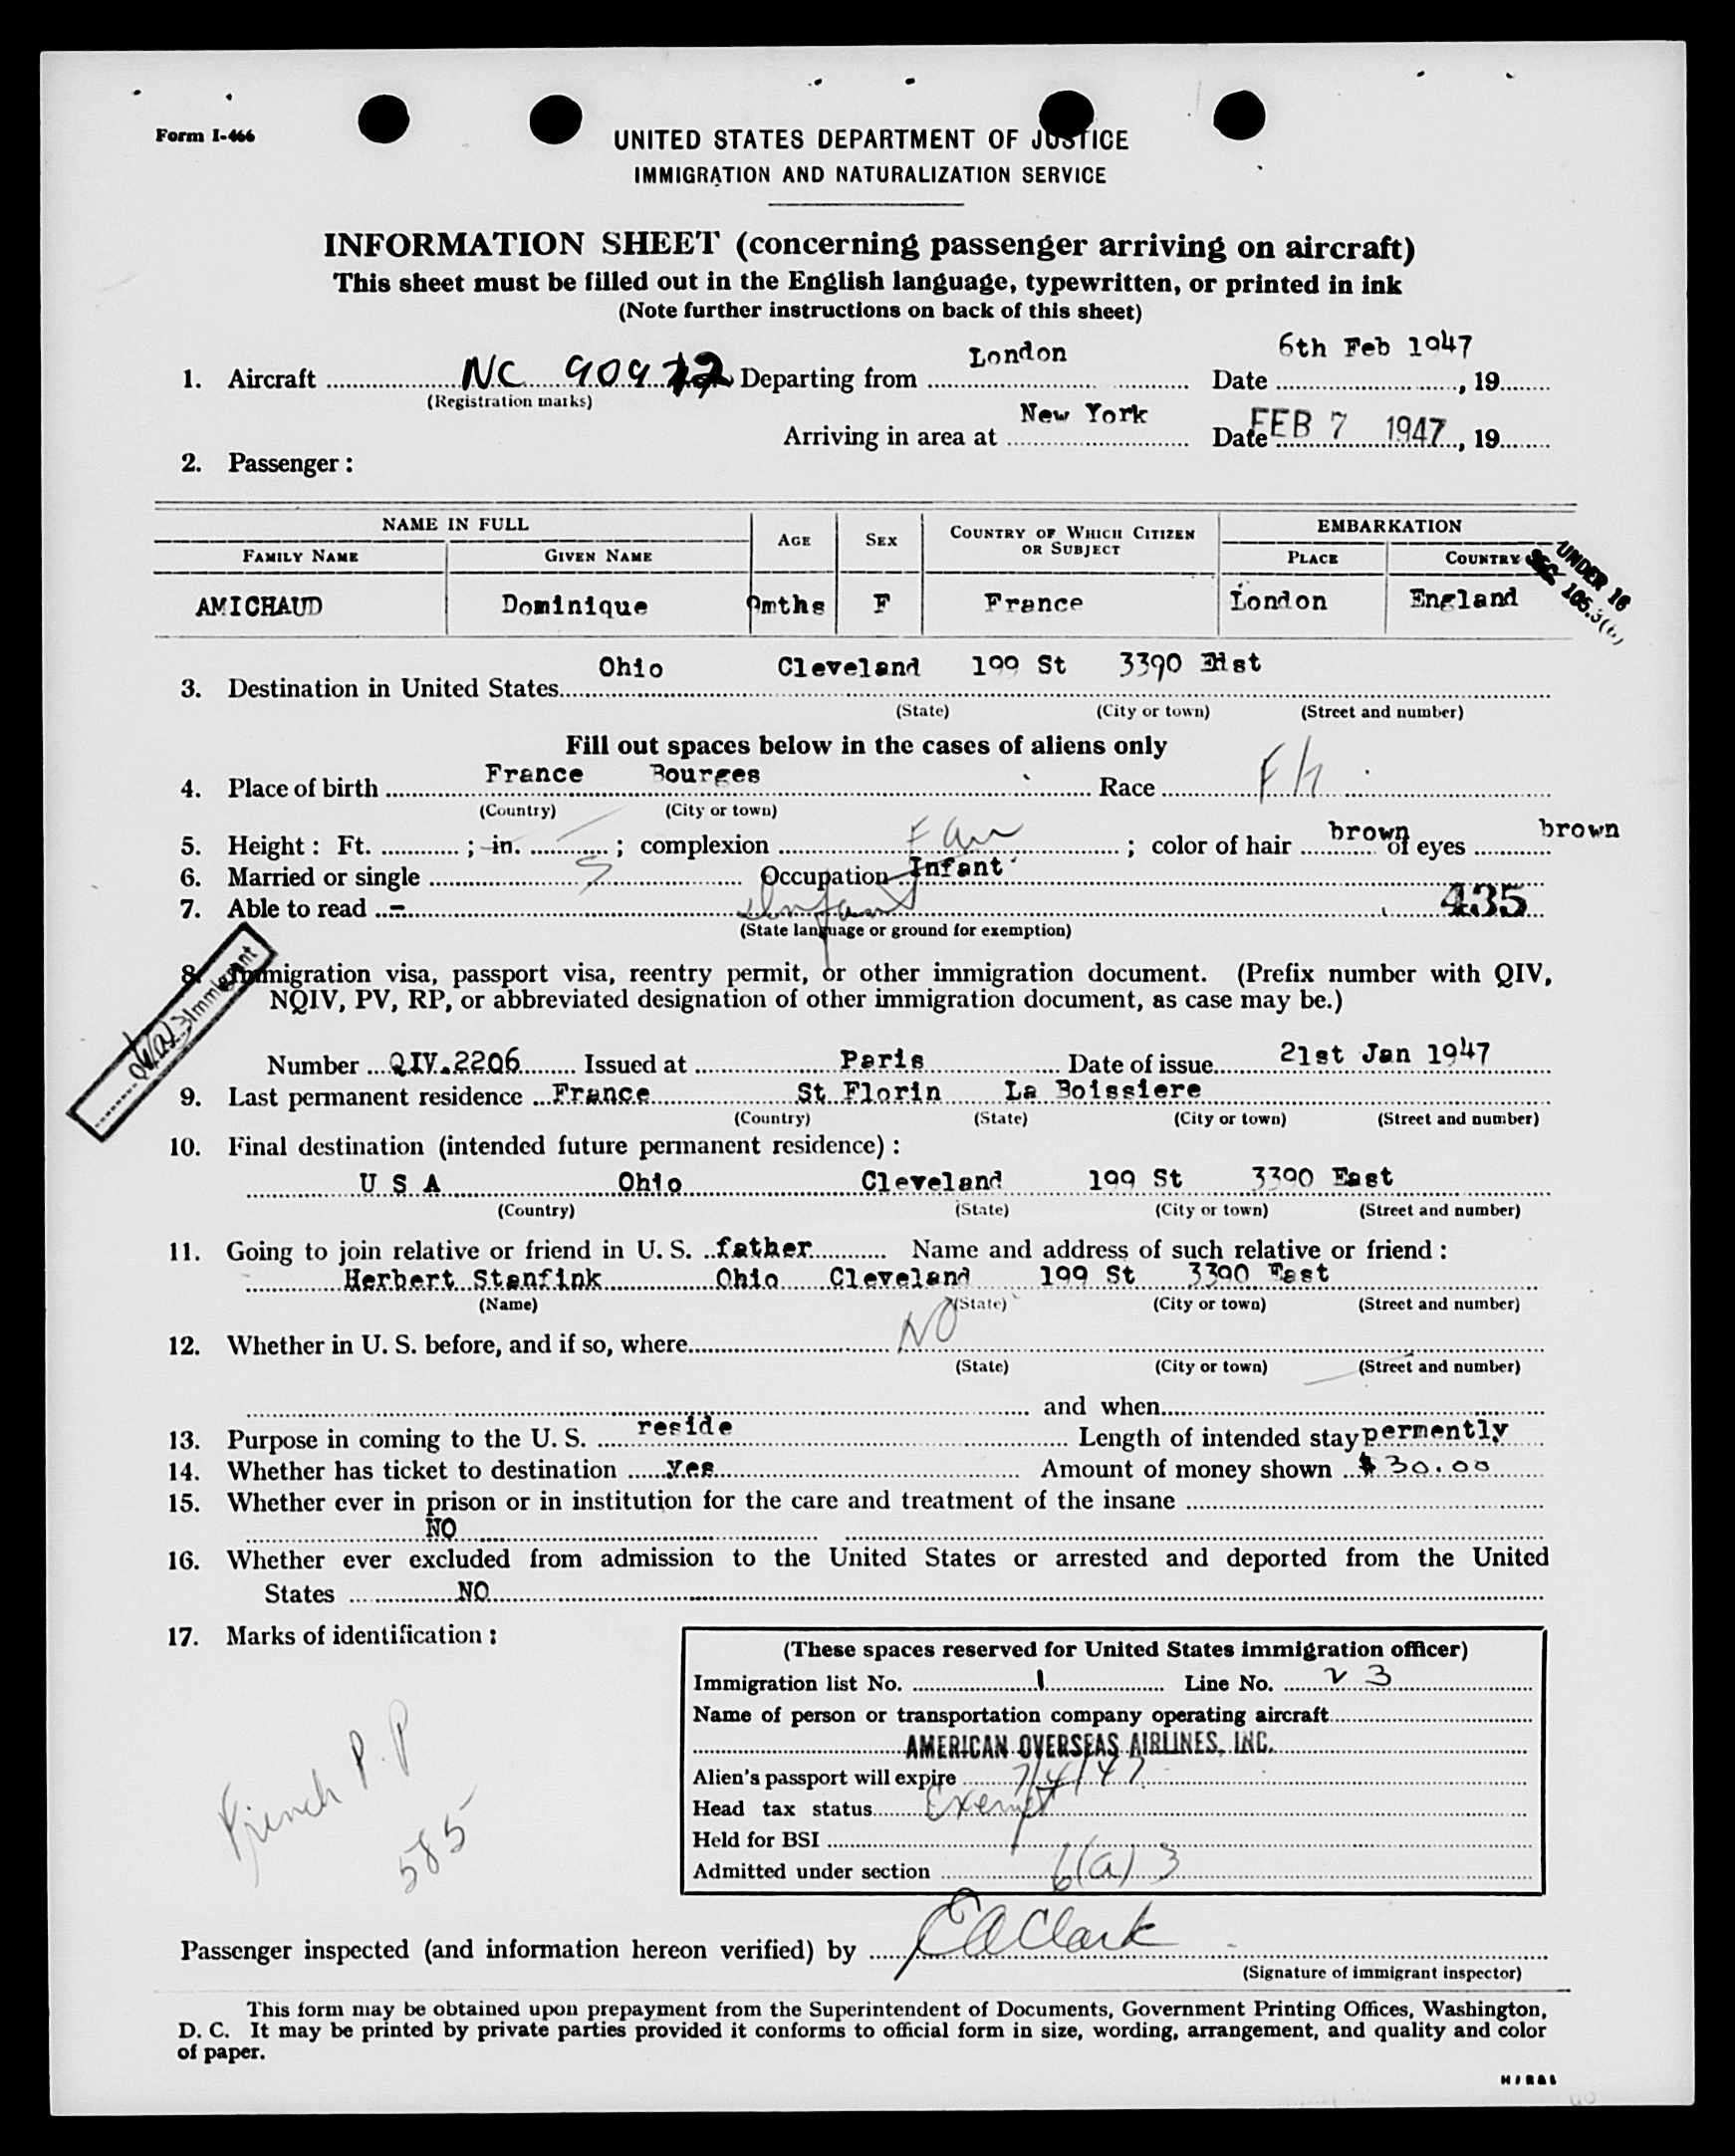 Form I-466
UNITED STATES DEPARTMENT OF JUSTICE
IMMIGRATION AND NATURALIZATION SERVICE
INFORMATION SHEET (concerning passenger arriving on aircraft)
This sheet must be filled out in the English language, typewritten, or printed in ink
(Note further instructions on back of this sheet)
1. Aircraft NC Departing from London Date 6th Feb 1947, 19
(Registration marks)
Arriving in area at New York Date FEB 7 1947, 19
2. Passenger:
NAME IN FULL AGE SEX COUNTRY OF WHICH CITIZEN OR SUBJECT EMBARKATION
FAMILY NAME GIVEN NAME PLACE COUNTRY
UNDER 16
SEC. 165.3(b)
AMICHAUD Dominique 9mths F France London England
3. Destination in United States Ohio Cleveland 199 St 3390 East
(State) (City or town) (Street and number)
Fill out spaces below in the cases of aliens only
4. Place of birth France Bourges Race Fh
(Country) (City or town)
5. Height: Ft. ; in. ; complexion Fair ; color of hair brown of eyes brown
6. Married or single S Occupation Infant
7. Able to read - Infant 435
(State language or ground for exemption)
8. Immigration visa, passport visa, reentry permit, or other immigration document. (Prefix number with QIV,
NQIV, PV, RP, or abbreviated designation of other immigration document, as case may be.)
6(a)3 Immigrant
Number QIV.2206 Issued at Paris Date of issue 21st Jan 1947
9. Last permanent residence France St Florin La Boissiere
(Country) (State) (City or town) (Street and number)
10. Final destination (intended future permanent residence):
U S A Ohio Cleveland 199 St 3390 East
(Country) (State) (City or town) (Street and number)
11. Going to join relative or friend in U. S. father Name and address of such relative or friend:
Herbert Stanfink Ohio Cleveland 199 St 3390 East
(Name) (State) (City or town) (Street and number)
12. Whether in U. S. before, and if so, where NO
(State) (City or town) (Street and number)
and when
13. Purpose in coming to the U. S. reside Length of intended stay permently
14. Whether has ticket to destination yes Amount of money shown $30.00
15. Whether ever in prison or in institution for the care and treatment of the insane
NO
16. Whether ever excluded from admission to the United States or arrested and deported from the United
States NO
17. Marks of identification:
French P.P
585
(These spaces reserved for United States immigration officer)
Immigration list No. 1 Line No. 23
Name of person or transportation company operating aircraft
AMERICAN OVERSEAS AIRLINES, INC.
Alien's passport will expire 7/4/47
Head tax status Exempt
Held for BSI
Admitted under section 6(a)3
Passenger inspected (and information hereon verified) by EA Clark
(Signature of immigrant inspector)
This form may be obtained upon prepayment from the Superintendent of Documents, Government Printing Offices, Washington,
D. C. It may be printed by private parties provided it conforms to official form in size, wording, arrangement, and quality and color
of paper.